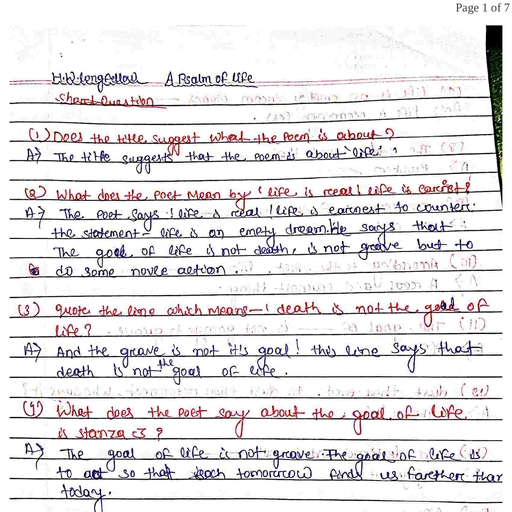 Page 1 of 7
H.W. longfellow A Psalm of life
Short Question
(1) Does the title suggest what the poem is about?
A→ The title suggests that the poem is about 'life'.
(2) What does the poet mean by 'life is real! life is earnest?
A→ The poet says 'life is real! life is earnest to counter
the statement - life is an empty dream. He says that
The goal of life is not death, is not grave but to
do some novle action.
(3) quote the line which means - 'death is not the goal of
life?
A→ And the grave is not it's goal! this line says that
death is not the goal of life.
(4) What does the poet say about the goal of life
is stanza <3 ?
A→ The goal of life is not grave. The goal of life is
to act so that each tomorrow finds us farther than
today.